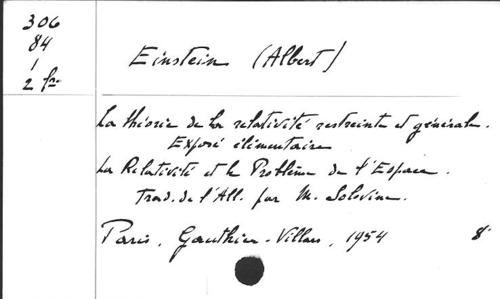 306
84
1
2 fr.
Einstein (Albert)
La théorie de la relativité restreinte et générale.
Exposé élémentaire
La Relativité et le Problème de l'Espace.
Trad. de l'All. par M. Solovine.
Paris, Gauthier-Villars, 1954 8°